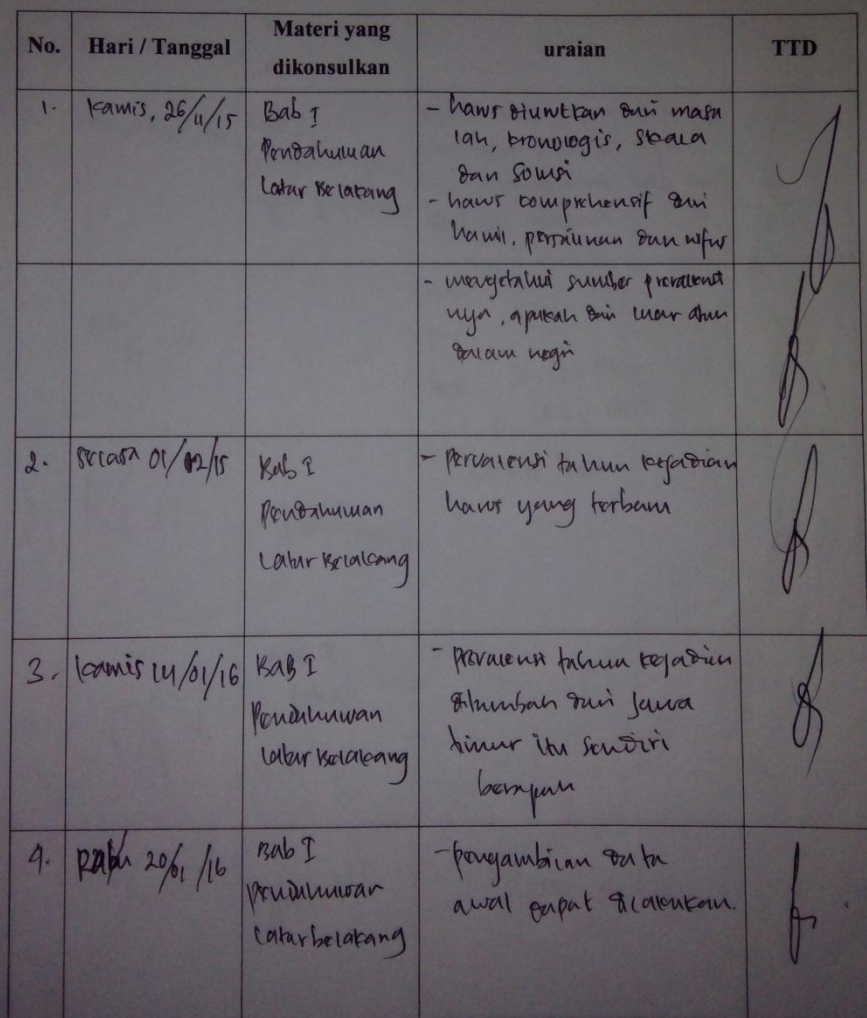 No.
Hari / Tanggal
Materi yang
dikonsulkan
uraian
TTD
1.
Kamis, 26/11/15
Bab I
Pendahuluan
Latar Belakang
- harus diurutkan dari masa
lah, kronologis, skala
dan solusi
- harus komprehensif dari
hamil, persalinan dan nifas
- mengetahui sumber prevalensi
nya, apakah dari luar atau
dalam negri
2.
Selasa 01/12/15
Bab I
Pendahuluan
Latar Belakang
- Pervalensi tahun kejadian
harus yang terbaru
3.
Kamis 14/01/16
Bab I
Pendahuluan
Latar Belakang
- Prevalensi tahun kejadian
ditambah dari Jawa
timur itu sendiri
berapah
4.
Rabu 20/01/16
Bab I
Pendahuluan
Latar belakang
- pengambilan data
awal dapat dilakukan.